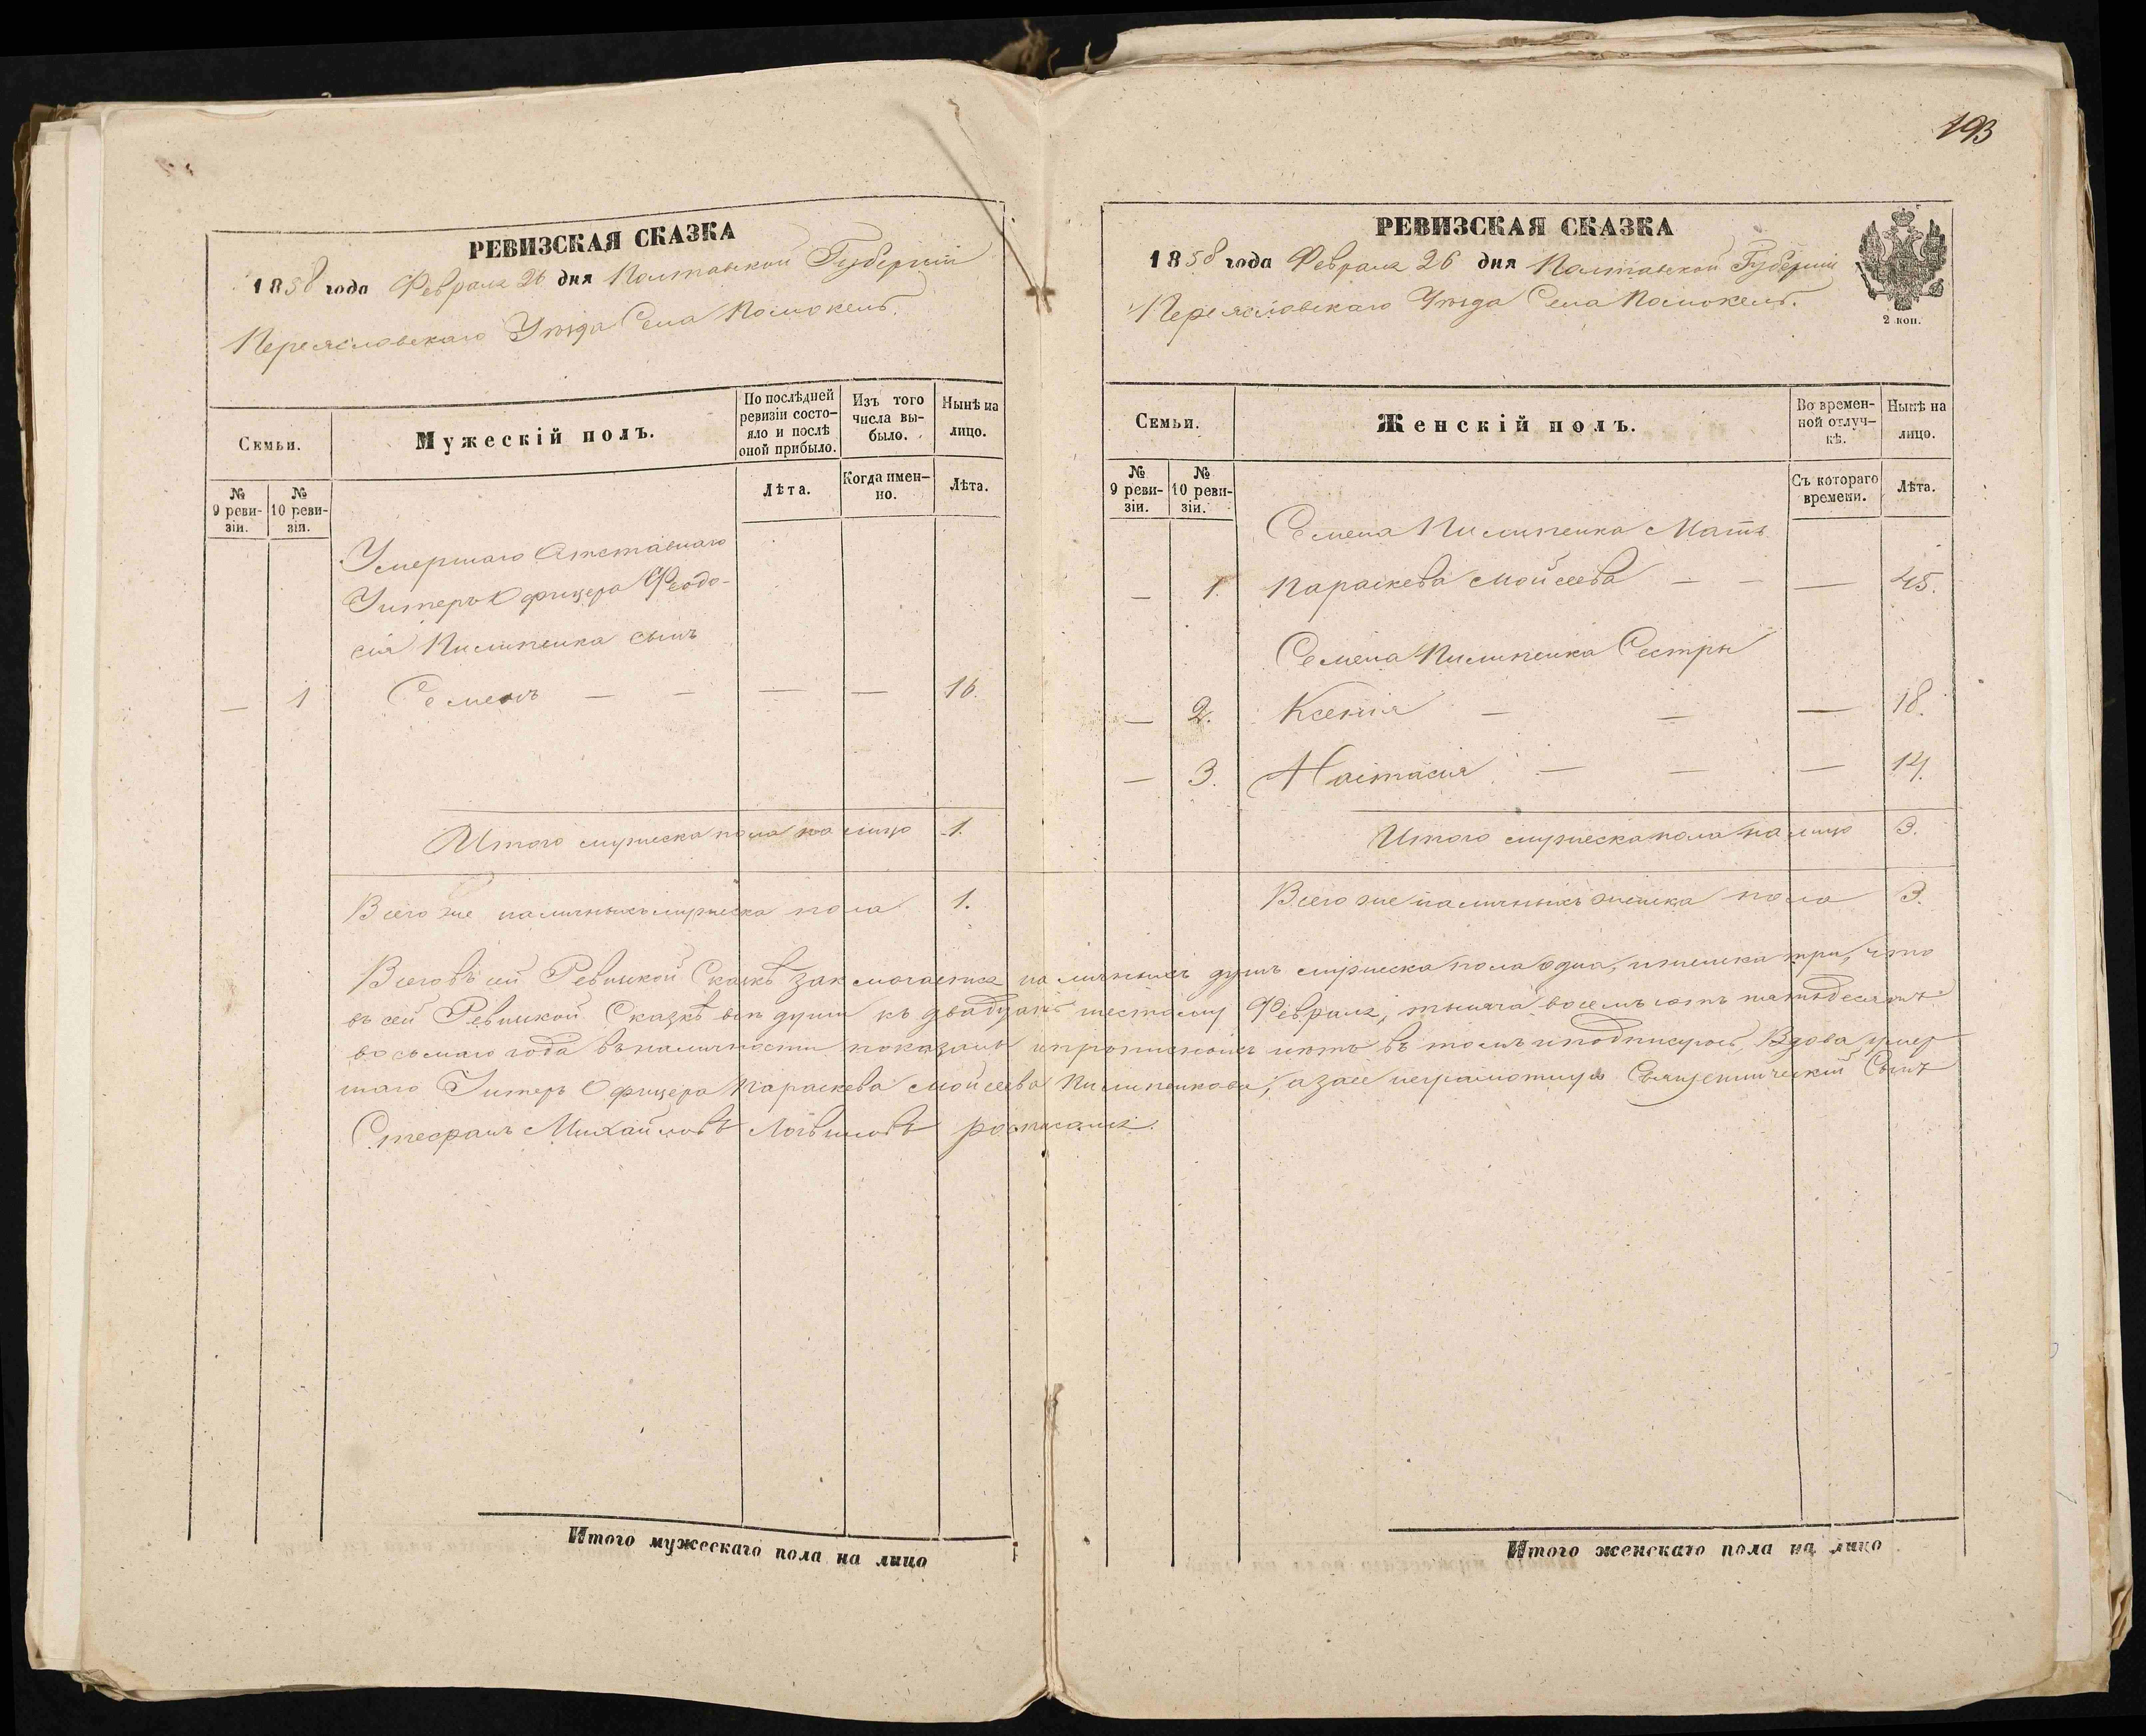 193
РЕВИЗСКАЯ СКАЗКА
1858 года Февраля 26 дня Полтавской Губерніи
Переясловскаго Уѣзда Села Помоклъ.
Семьи.
Мужескій полъ.
По послѣдней ревизіи состо-
яло и послѣ оной прибыло.
Изъ того числа вы-
было.
Нынѣ на лицо.
№ 9 реви-
зіи.
№ 10 реви-
зіи.
Лѣта.
Когда имен-
но.
Лѣта.
Умершаго Отставнаго
Унтеръ Офицера Феодо-
сія Пилипенка сынъ
— 1 Семенъ — — — — 16.
Итого мужеска пола на лицо 1.
Всего же наличныхъ мужеска пола 1.
РЕВИЗСКАЯ СКАЗКА
1858 года Февраля 26 дня Полтавской Губерніи
Переясловскаго Уѣзда Села Помоклъ.
2 коп.
Семьи.
Женскій полъ.
Во времен-
ной отлуч-
кѣ.
Нынѣ на лицо.
№ 9 реви-
зіи.
№ 10 реви-
зіи.
Съ котораго времени.
Лѣта.
Семена Пилипенка Мать
— 1. Параскева Моисеева — — — 45.
Семена Пилипенка Сестры
— 2. Ксенія — — — 18.
— 3. Настасія — — — 14.
Итого мужеска пола на лицо 3.
Всего же наличныхъ женска пола 3.
Всего въ сей Ревиской Сказкѣ заключается наличныхъ душъ мужеска пола одна, и женска три, что
въ сей Ревиской Сказкѣ всѣ души къ двадцать шестому Февраля, тысяча восемъ сотъ пятьдесятъ
восьмаго года въ наличности показаны и прописныхъ нѣтъ въ томъ и подписуюсь, Вдова умер
шаго Унтеръ Офицера Параскева Моисеева Пилипенкова, а за ее неграмотную Священническій Сынъ
Стефанъ Михайловъ Логвиновъ росписался.
Итого мужескаго пола на лицо
Итого женскаго пола на лицо